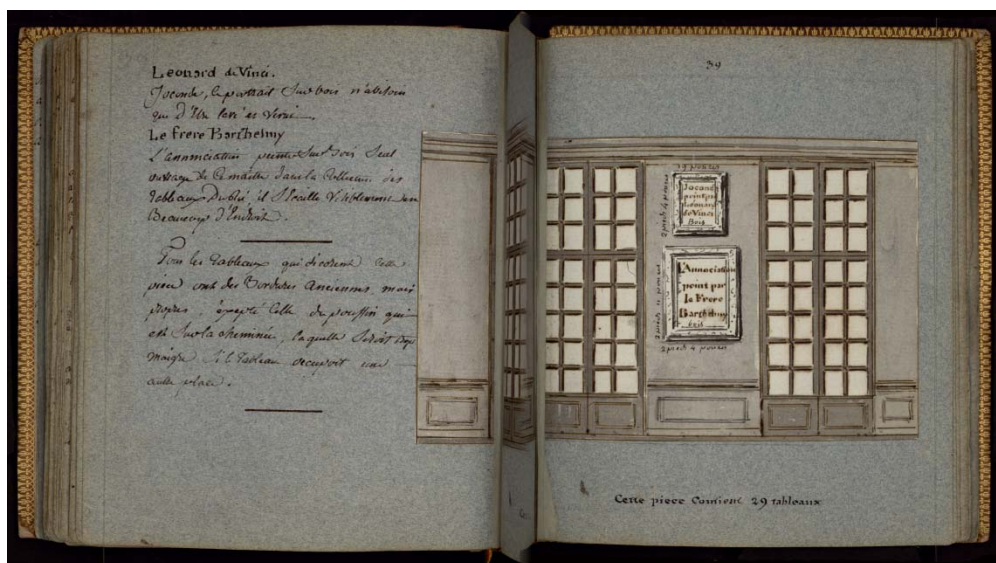 Leonard de Vinci.
Joconde, le portrait Sur bois n'a besoin
que d'Etre lavé et Verni
Le frere Barthelmy
L'annonciation peinte Sur bois Seul
ouvrage de Ce maitre dans la Collection des
tableaux Du Roi, il S'écaille Visiblement dans
Beaucoup d'Endroit.
Tous les Tableaux qui décorent Cette
piece ont des Bordures Anciennes, mais
propres, éxcepté Celle du poussin qui
est Sur la cheminée, laquelle Seroit trop
maigre Si le Tableau occupoit une
autre place.
39
Joconde
peint par
Léonard
de Vinci
Bois
2 pieds 4 pouces
L'Annociation
peint par
le Frere
Barthelmy
bois
2 pieds 4 pouces
Cette piece Contient 29 tableaux